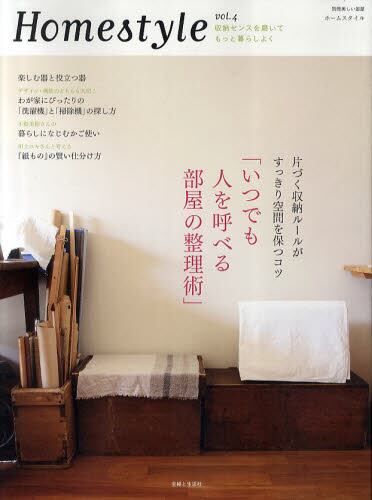 Homestyle
vol.4
収納センスを磨いて
もっと暮らしよく
別冊美しい部屋
ホームスタイル
楽しむ器と役立つ器
わが家にぴったりの
「洗濯機」と「掃除機」の探し方
暮らしになじむかご使い
『紙もの』の賢い仕分け方
片づく収納ルールが
すっきり空間を保つコツ
「いつでも
人を呼べる
部屋の整理術」
主婦と生活社